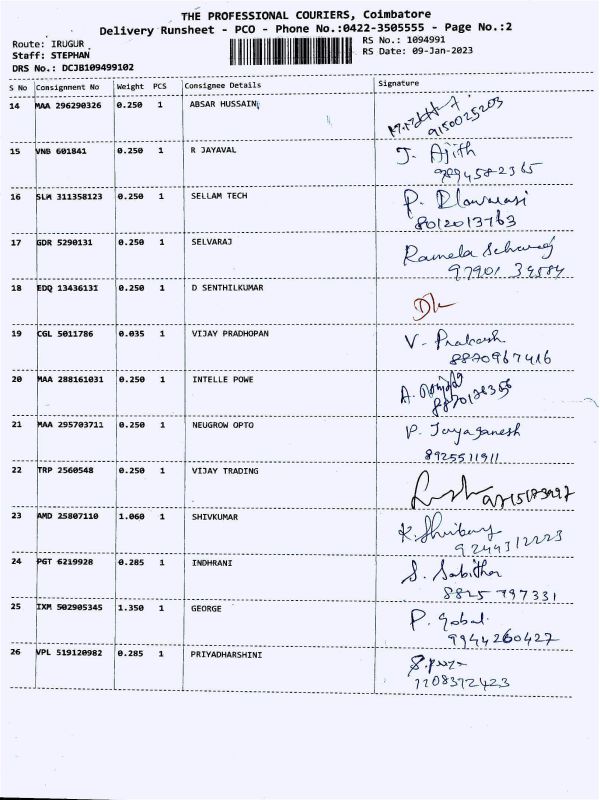 THE PROFESSIONAL COURIERS, Coimbatore
Delivery Runsheet - PCO - Phone No.:0422-3505555 - Page No.:2
Route: IRUGUR RS No.: 1094991
Staff: STEPHAN RS Date: 09-Jan-2023
DRS No.: DCJB109499102
S No Consignment No Weight PCS Consignee Details Signature
14 MAA 296290326 0.250 1 ABSAR HUSSAIN
9150025203
15 VNB 601841 0.250 1 R JAYAVAL J. Ajith
9894582365
16 SLM 311358123 0.250 1 SELLAM TECH P.
8012013763
17 GDR 5290131 0.250 1 SELVARAJ Ramela
97901 34584
18 EDQ 13436131 0.250 1 D SENTHILKUMAR
19 CGL 5011786 0.035 1 VIJAY PRADHOPAN V- Prakash
8870967416
20 MAA 288161031 0.250 1 INTELLE POWE A.
21 MAA 295703711 0.250 1 NEUGROW OPTO P. Jayaganesh
8925511911
22 TRP 2560548 0.250 1 VIJAY TRADING
23 AMD 25807110 1.060 1 SHIVKUMAR K.
9244312223
24 PGT 6219928 0.285 1 INDHRANI S. Sabitha
8825 797331
25 IXM 502905345 1.350 1 GEORGE P. Gobal
9944260427
26 VPL 519120982 0.285 1 PRIYADHARSHINI S.
7708372423